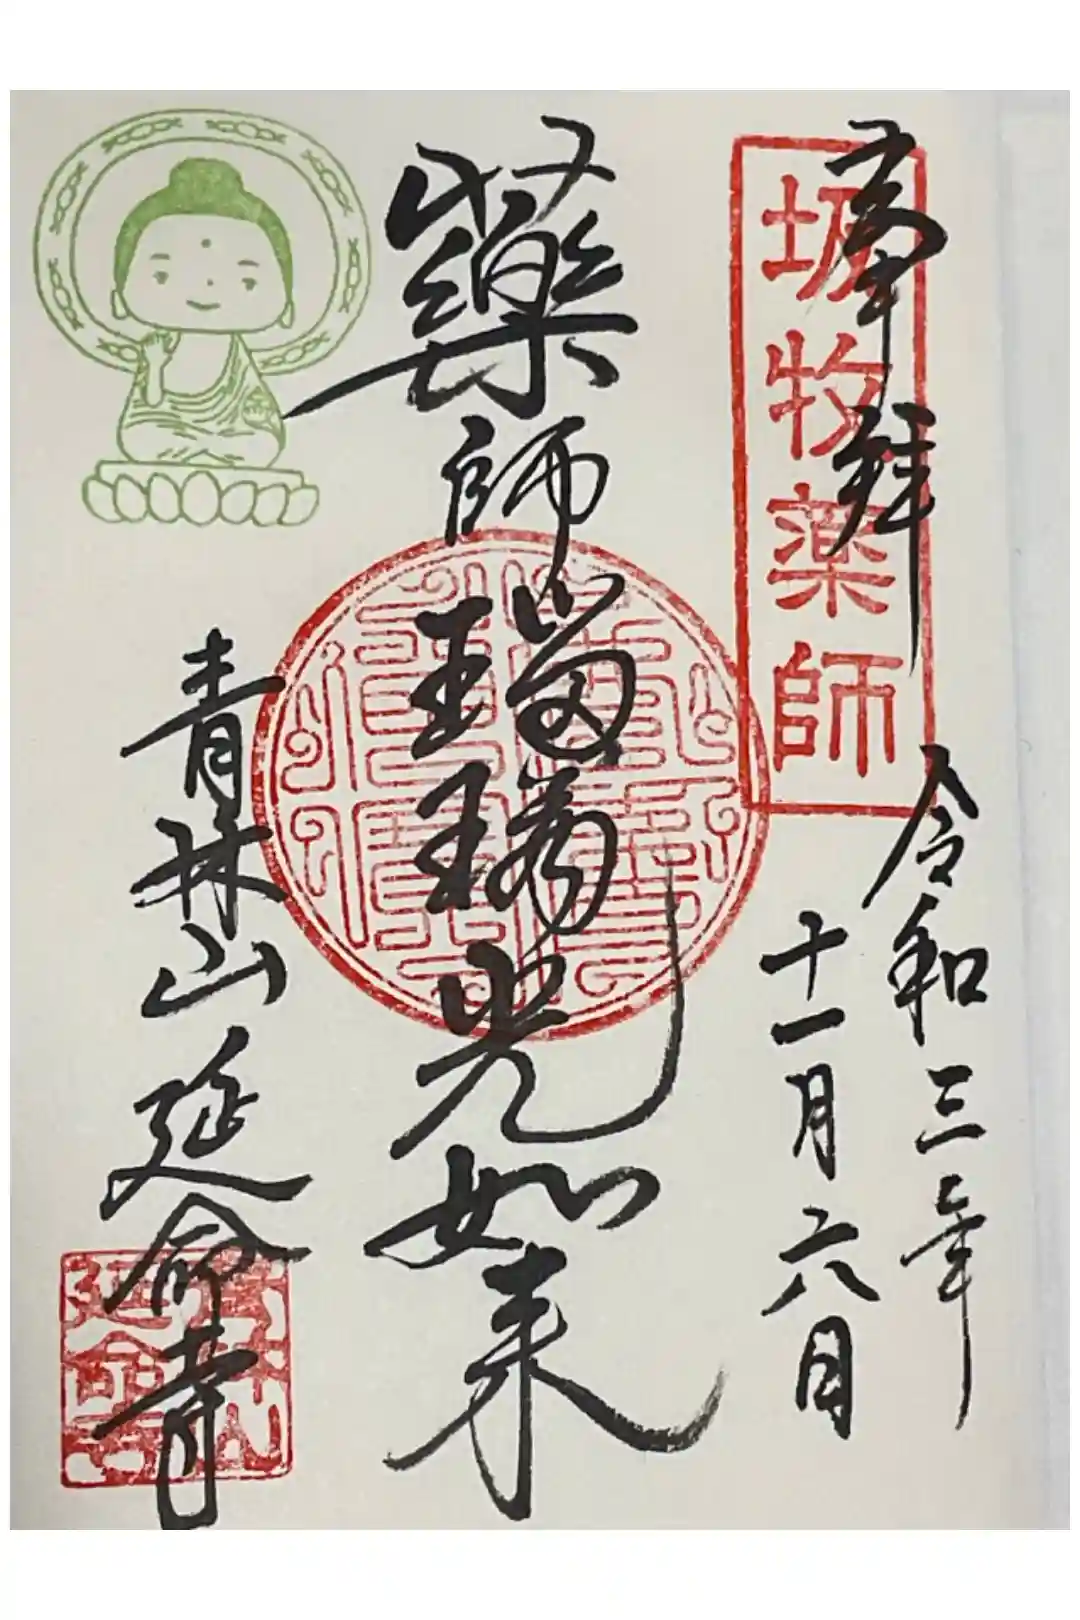 奉拝
牧薬師
令和三年
十一月六日
藥師瑠璃光如来
青林山延命寺